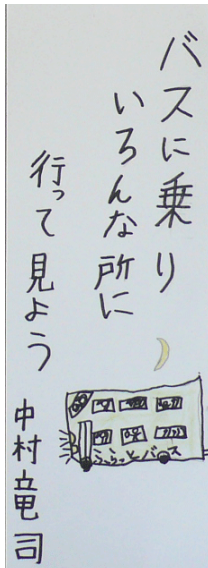 バスに乗り
いろんな所に
行って見よう
中村竜司
ふらっとバス